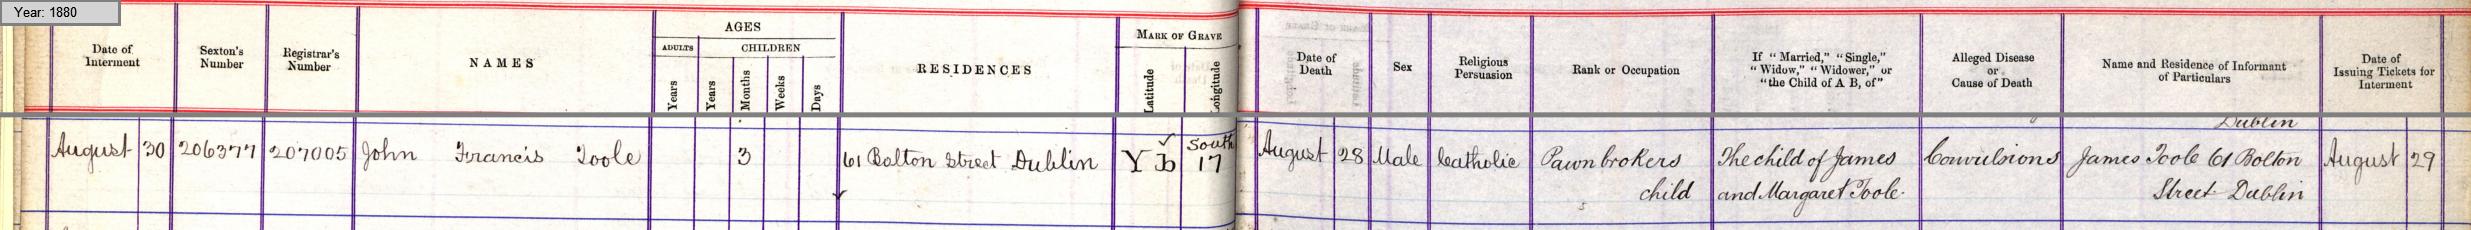 Year: 1880
Date of Interment
Sexton's Number
Registrar's Number
NAMES
AGES
ADULTS
CHILDREN
Years
Years
Months
Weeks
Days
RESIDENCES
MARK OF GRAVE
Latitude
Longitude
Date of Death
Sex
Religious Persuasion
Rank or Occupation
If "Married," "Single," "Widow," "Widower," or "the Child of A B, of"
Alleged Disease or Cause of Death
Name and Residence of Informant of Particulars
Date of Issuing Tickets for Interment
Dublin
August 30 206377 207005 John Francis Toole 3 61 Bolton Street Dublin Y South 17 August 28 Male Catholic Pawnbrokers The child of James Convulsions James Toole 61 Bolton August 29
child and Margaret Toole. Street Dublin